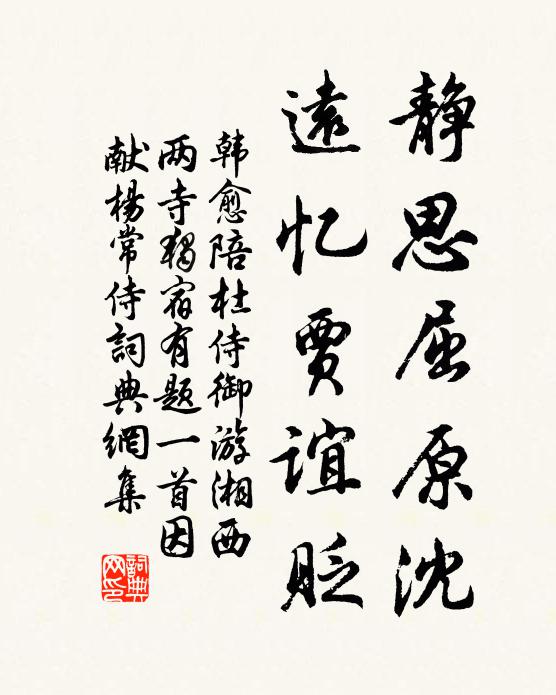 静思屈原沈
遠忆贾谊貶
韩愈陪杜侍御游湘西
两寺獨宿有题一首因
献楊常侍詞典網集
詞典
网印